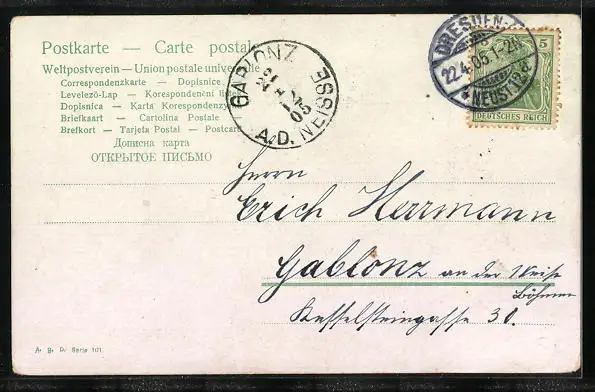 Postkarte — Carte postale
Weltpostverein — Union postale universelle
Correspondenzkarte — Dopisnice
Levelező-Lap — Korespondenční lístek
Dopisnica — Karta Korespondenzy
Briefkaart — Cartolina Postale
Brefkort — Tarjeta Postal — Postcard
Дописна карта
ОТКРЫТОЕ ПИСЬМО
GABLONZ
A.D. NEISSE
05
DRESDEN-
22.4.05.1-2N
NEUST. 1 BB
5
DEUTSCHES REICH
Herrn
Erich Herrmann
Gablonz an der Neiße
Böhmen
Kesselsteingasse 30.
A. B. D. Serie 101